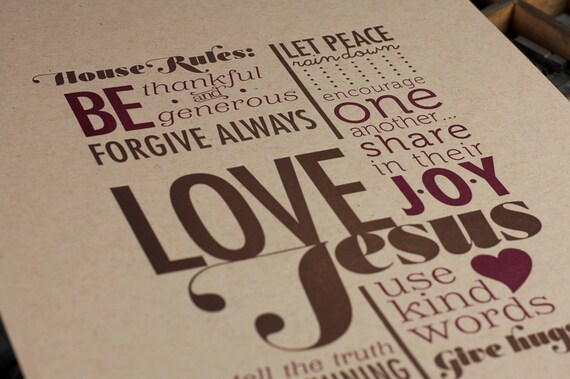 House Rules:
BE thankful
and
generous
FORGIVE ALWAYS
LET PEACE
rain down
encourage
one
another...
share
in their
J·O·Y
LOVE
Jesus
use
kind
words
tell the truth
Give hugs